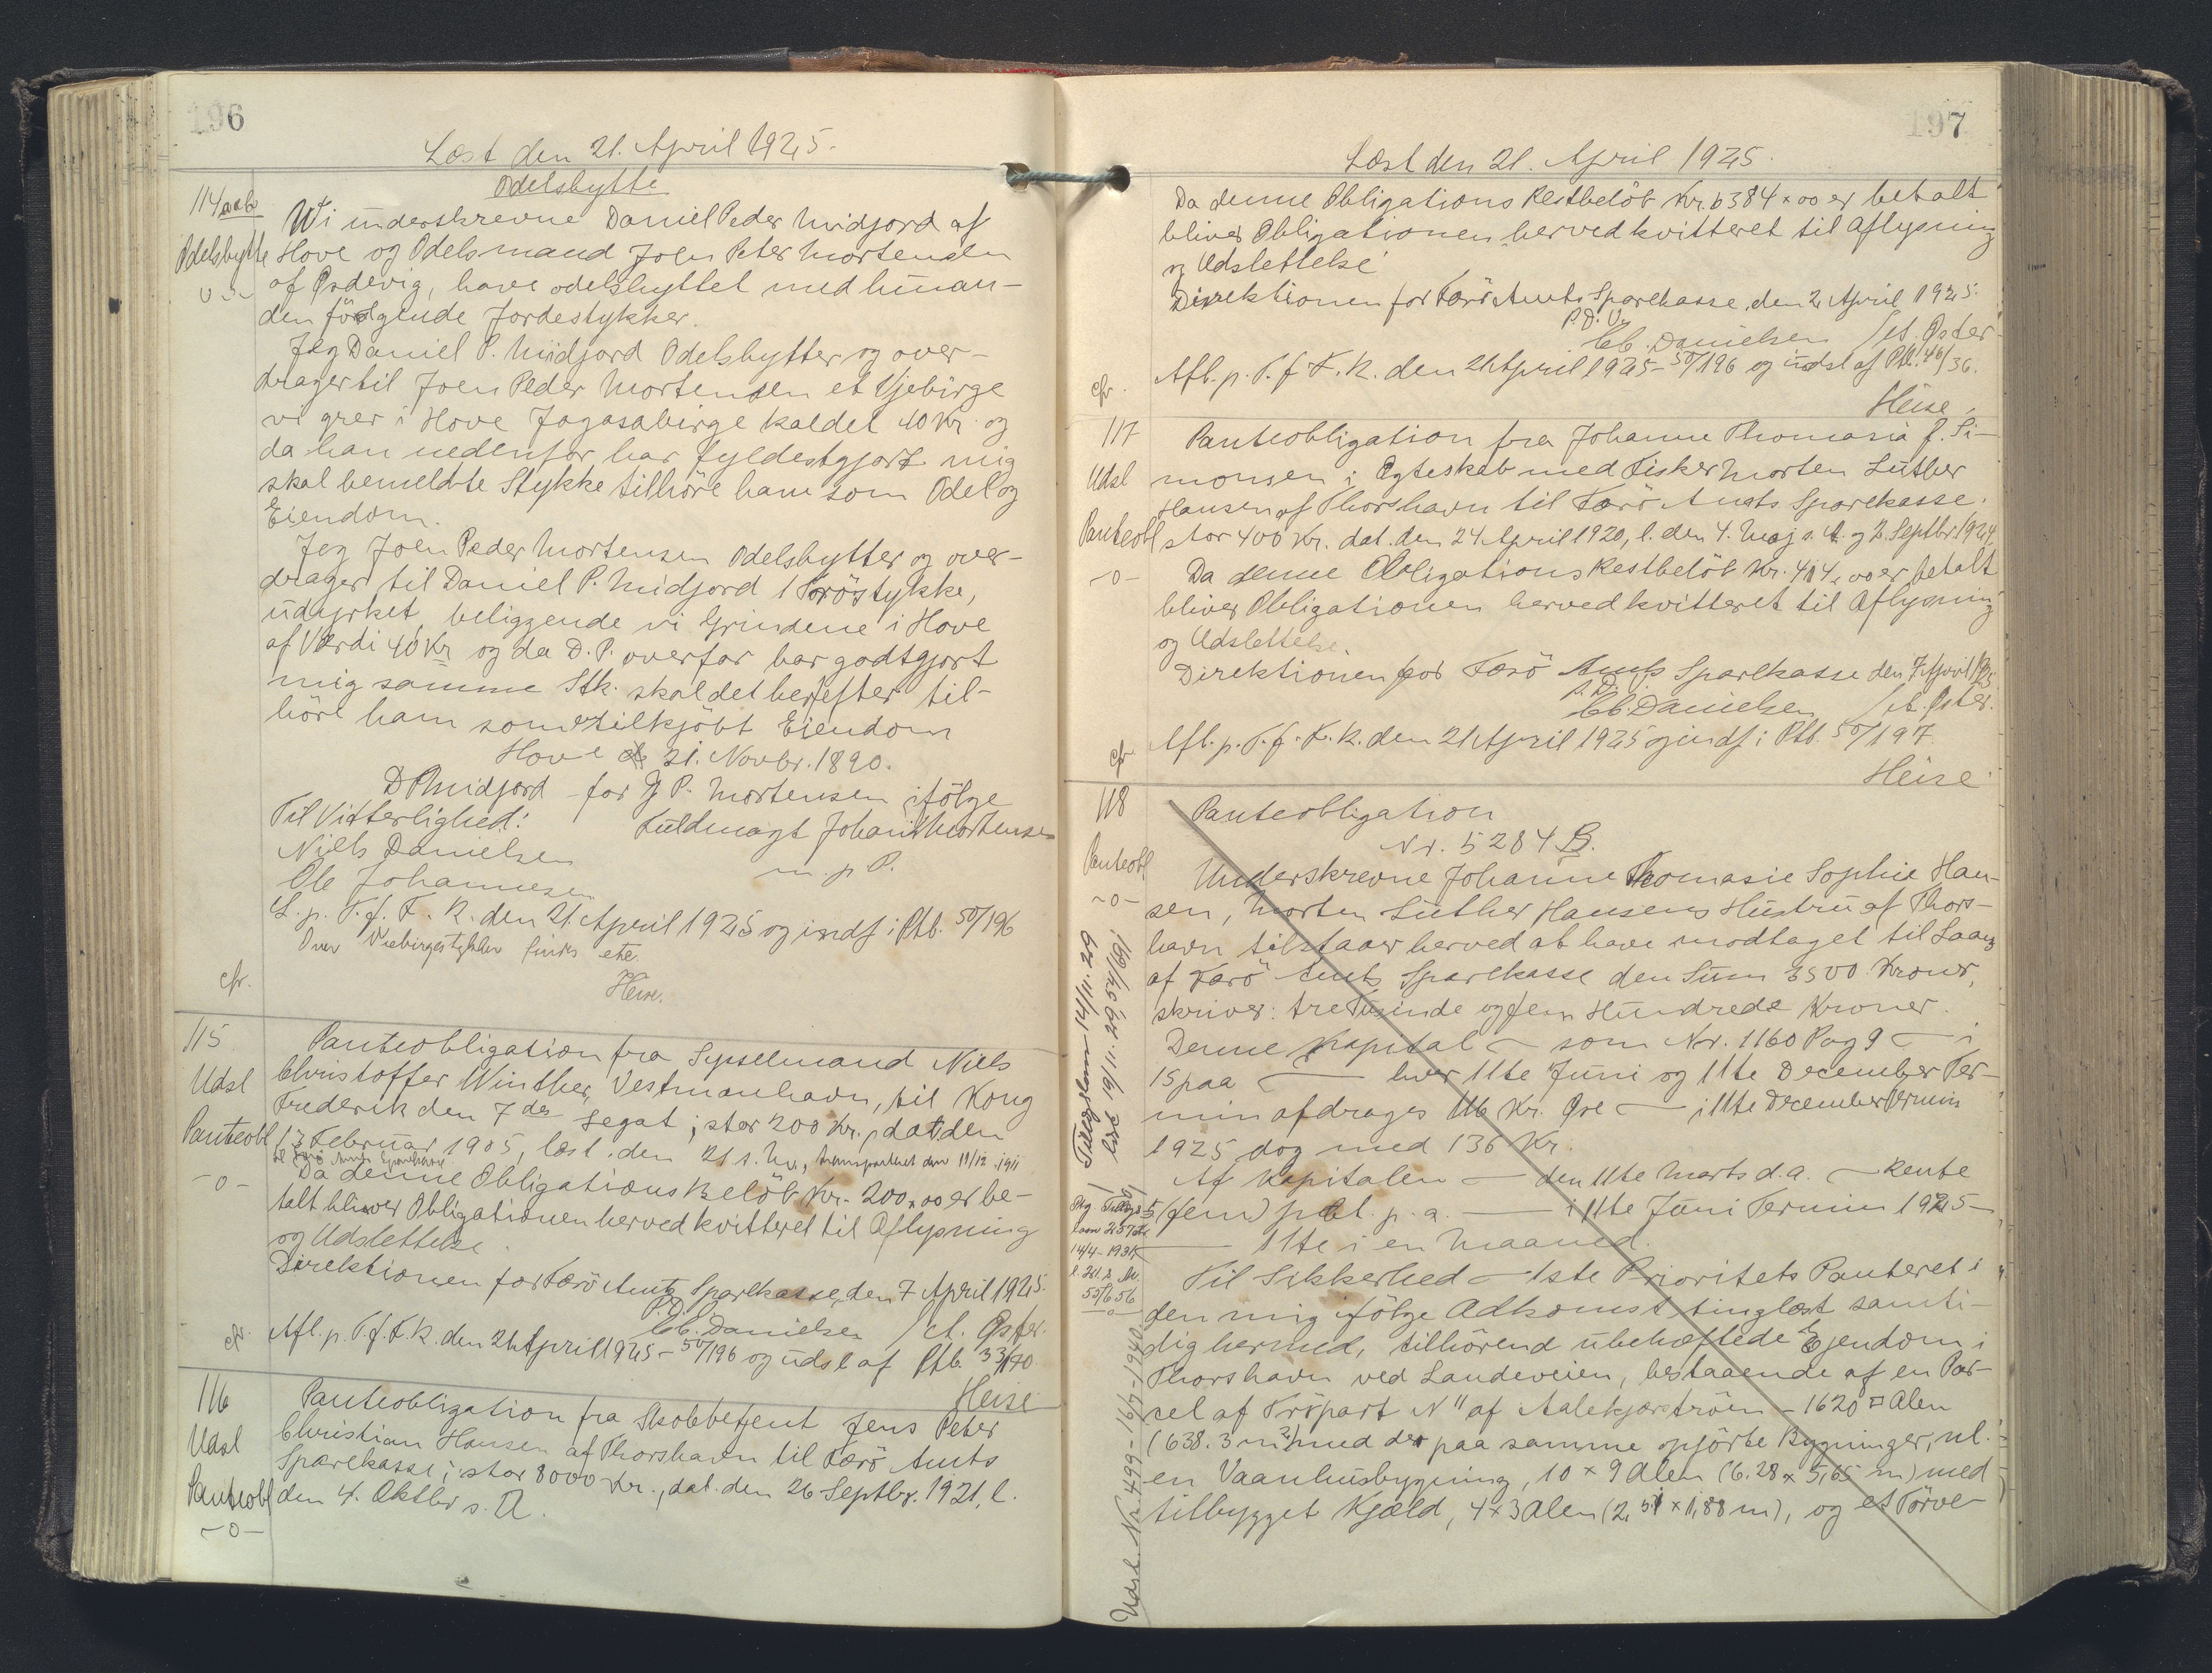 196
Læst den 21. April 1925.
Odelsbytte
114
Odelsbytte
Wi underskrevne Daniel Peder Midjord af
Hove og Odelsmand Joen Peter Mortensen
af Ørdevig, have odelsbyttet med hinan-
den følgende Jordestykker.
Jeg Daniel P. Midjord Odelsbytter og over-
drager til Joen Peder Mortensen et Vjebirge
vi grer i Hove Jogasabirge kaldet 40 Kr. og
da han nedenfor har fyldestgjort mig
skal bemeldte Stykke tilhöre ham som Odel og
Eiendom.
Jeg Joen Peder Mortensen Odelsbytter og over-
drager til Daniel P. Midjord 1 Tröstykke,
udyrket, beliggende vi Grindene i Hove
af Værdi 40 Kr og da D. P. overfor har godtgjort
mig samme Stk. skal det herefter til-
höre ham som tilkjöbt Eiendom
Hove d. 21. Novbr. 1890.
D P Midjord for J P. Mortensen ifölge
Til Vitterlighed: Fuldmagt Johan Mortensen
Niels Danielsen m. p. P.
Ole Johannesen
L. p. T. f. F. K. den 21. April 1925 og indf i Ptb. 50/196
Heise.
cfr.
115
Udsl
Panteobl
-o-
Panteobligation fra Sysselmand Niels
Christoffer Winther, Vestmanhavn, til Kong
Frederik den 7des Legat, stor 200 Kr., dat den
13 Februar 1905, læst den 21 s. M., transporteret den 11/12 1911
til Færö Amts Sparekasse
Da denne Obligations Belöb Kr. 200,00 er be-
talt bliver Obligationen herved kvitteret til Aflysning
og Udslettelse.
Direktionen for Færö Amts Sparekasse, den 7 April 1925.
P. D. V.
C. C. Danielsen / cl. Öster.
cfr. Afl. p. T. f. F. K. den 21 April 1925 - 50/196 og udsl af Ptb. 33/170
Heise
116
Udsl
Panteobl
-o-
Panteobligation fra Skobbetjent Jens Peter
Christian Hansen af Thorshavn til Færö Amts
Sparekasse, stor 8000 Kr., dat. den 26 Septbr. 1921, l.
den 4. Oktbr s. A.
197
Læst den 21. April 1925.
Da denne Obligations Restbelöb Kr. 6384,00 er betalt
bliver Obligationen herved kvitteret til Aflysning
og Udslettelse
Direktionen for Færö Amts Sparekasse, den 2 April 1925.
P. D. V.
C. C. Danielsen / cl. Öster
cfr. Afl. p. T. f. F. K. den 21 April 1925 - 50/196 og udsl af Ptb. 46/36.
Heise
117
Udsl
Panteobl
-o-
Panteobligation fra Johanne Thomasia f. Si-
monsen i Ægteskab med Fisker Morten Luther
Hansen af Thorshavn til Færö Amts Sparekasse
stor 400 Kr. dat. den 24 April 1920, l. den 4. Maj s. A. og 2. Septbr 1924.
Da denne Obligations Restbelöb Kr. 404,00 er betalt
bliver Obligationen herved kvitteret til Aflysning
og Udslettelse.
Direktionen for Færö Amts Sparekasse den 7 April 1925
P. D. V.
C. C. Danielsen / cl. Öster.
cfr. Afl. p. T. f. F. K. den 21 April 1925 og indf i Ptb. 50/197
Heise
118
Panteobl.
-o-
Panteobligation
Nr. 5284 B.
Underskrevne Johanne Thomasie Sophie Han-
sen, Morten Luther Hansens Hustru af Thors-
havn tilstaaer herved at have modtaget til Laans
af Færö Amts Sparekasse den Sum 3500 Kroner,
skriver: tre Tusinde og fem Hundrede Kroner.
Denne Kapital — som Nr. 1160 Pag 9 — i
15 paa — hver 11te Juni og 11te December Ter-
min afdrages 116 Kr. Öre — i 11te December Termin
1925 dog med 136 Kr.
Af Kapitalen — den 11te Marts d.a. — Rente
5 (fem) pCt. p. a. — i 11te Juni Termin 1925 —
— 11te i en Maaned.
Til Sikkerhed — 1ste Prioritets Panteret i
den mig ifölge Adkomst tinglæst samti-
dig hermed, tilhörend ubehæftede Ejendom i
Thorshavn ved Landeveien, bestaaende af en Par-
cel af Tröpart N" af Aalekjærströin - 1620 □ Alen
(638.3 m²) med der paa samme opförte Bygninger, nl.:
en Vaanhusbygning, 10 × 9 Alen (6.28 × 5,65 m) med
tilbygget Kjæld, 4 × 3 Alen (2,51 × 1,88 m), og et Törve-
Tillægslaan 14/11. 29
læst 19/11. 29 54/191.
14/4 - 1931
l. 21 s. M.
55/656
Udsl. Nr. 499 - 16/7 - 1940